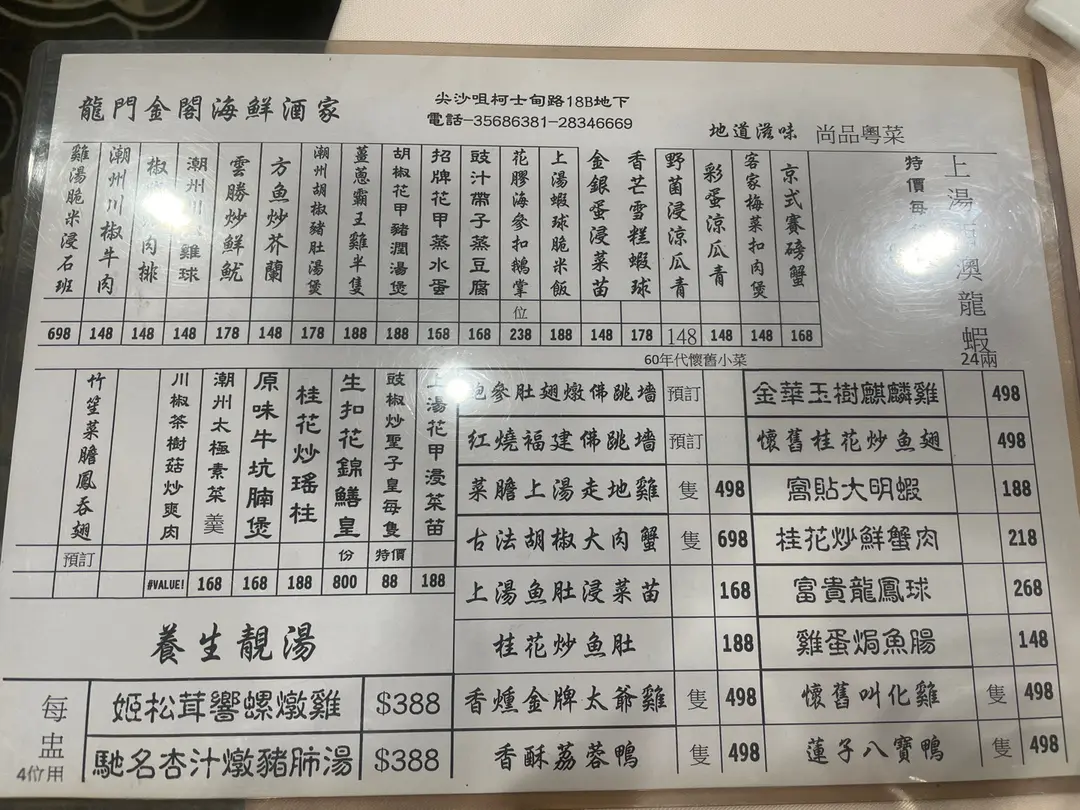 龍門金閣海鮮酒家
尖沙咀柯士甸路18B地下
電話-35686381-28346669
地道滋味 尚品粵菜
上湯 澳龍蝦
24兩
特價每
京式賽磅蟹 168
客家梅菜扣肉煲 148
彩蛋涼瓜青 148
野菌浸涼瓜青 148
香芒雪糕蝦球 178
金銀蛋浸菜苗 148
上湯蝦球脆米飯 188
花膠海參扣鵝掌 位 238
豉汁帶子蒸豆腐 168
招牌花甲蒸水蛋 168
胡椒花甲豬潤湯煲 188
薑蔥霸王雞半隻 188
潮州胡椒豬肚湯煲 178
方魚炒芥蘭 148
雲勝炒鮮魷 178
潮州川 雞球 148
椒 肉排 148
潮州川椒牛肉 148
雞湯脆米浸石班 698
60年代懷舊小菜
上湯花甲浸菜苗 188
豉椒炒聖子皇每隻 特價 88
生扣花錦鱔皇 份 800
桂花炒瑤柱 188
原味牛坑腩煲 168
潮州太極素菜羹 168
川椒茶樹菇炒爽肉 #VALUE!
竹笙菜膽鳳吞翅 預訂
鮑參肚翅燉佛跳墻 預訂
紅燒福建佛跳墻 預訂
菜膽上湯走地雞 隻 498
古法胡椒大肉蟹 隻 698
上湯魚肚浸菜苗 168
桂花炒魚肚 188
香燻金牌太爺雞 隻 498
香酥荔蓉鴨 隻 498
金華玉樹麒麟雞 498
懷舊桂花炒魚翅 498
窩貼大明蝦 188
桂花炒鮮蟹肉 218
富貴龍鳳球 268
雞蛋焗魚腸 148
懷舊叫化雞 隻 498
蓮子八寶鴨 隻 498
養生靚湯
每盅
4位用
姬松茸響螺燉雞 $388
馳名杏汁燉豬肺湯 $388